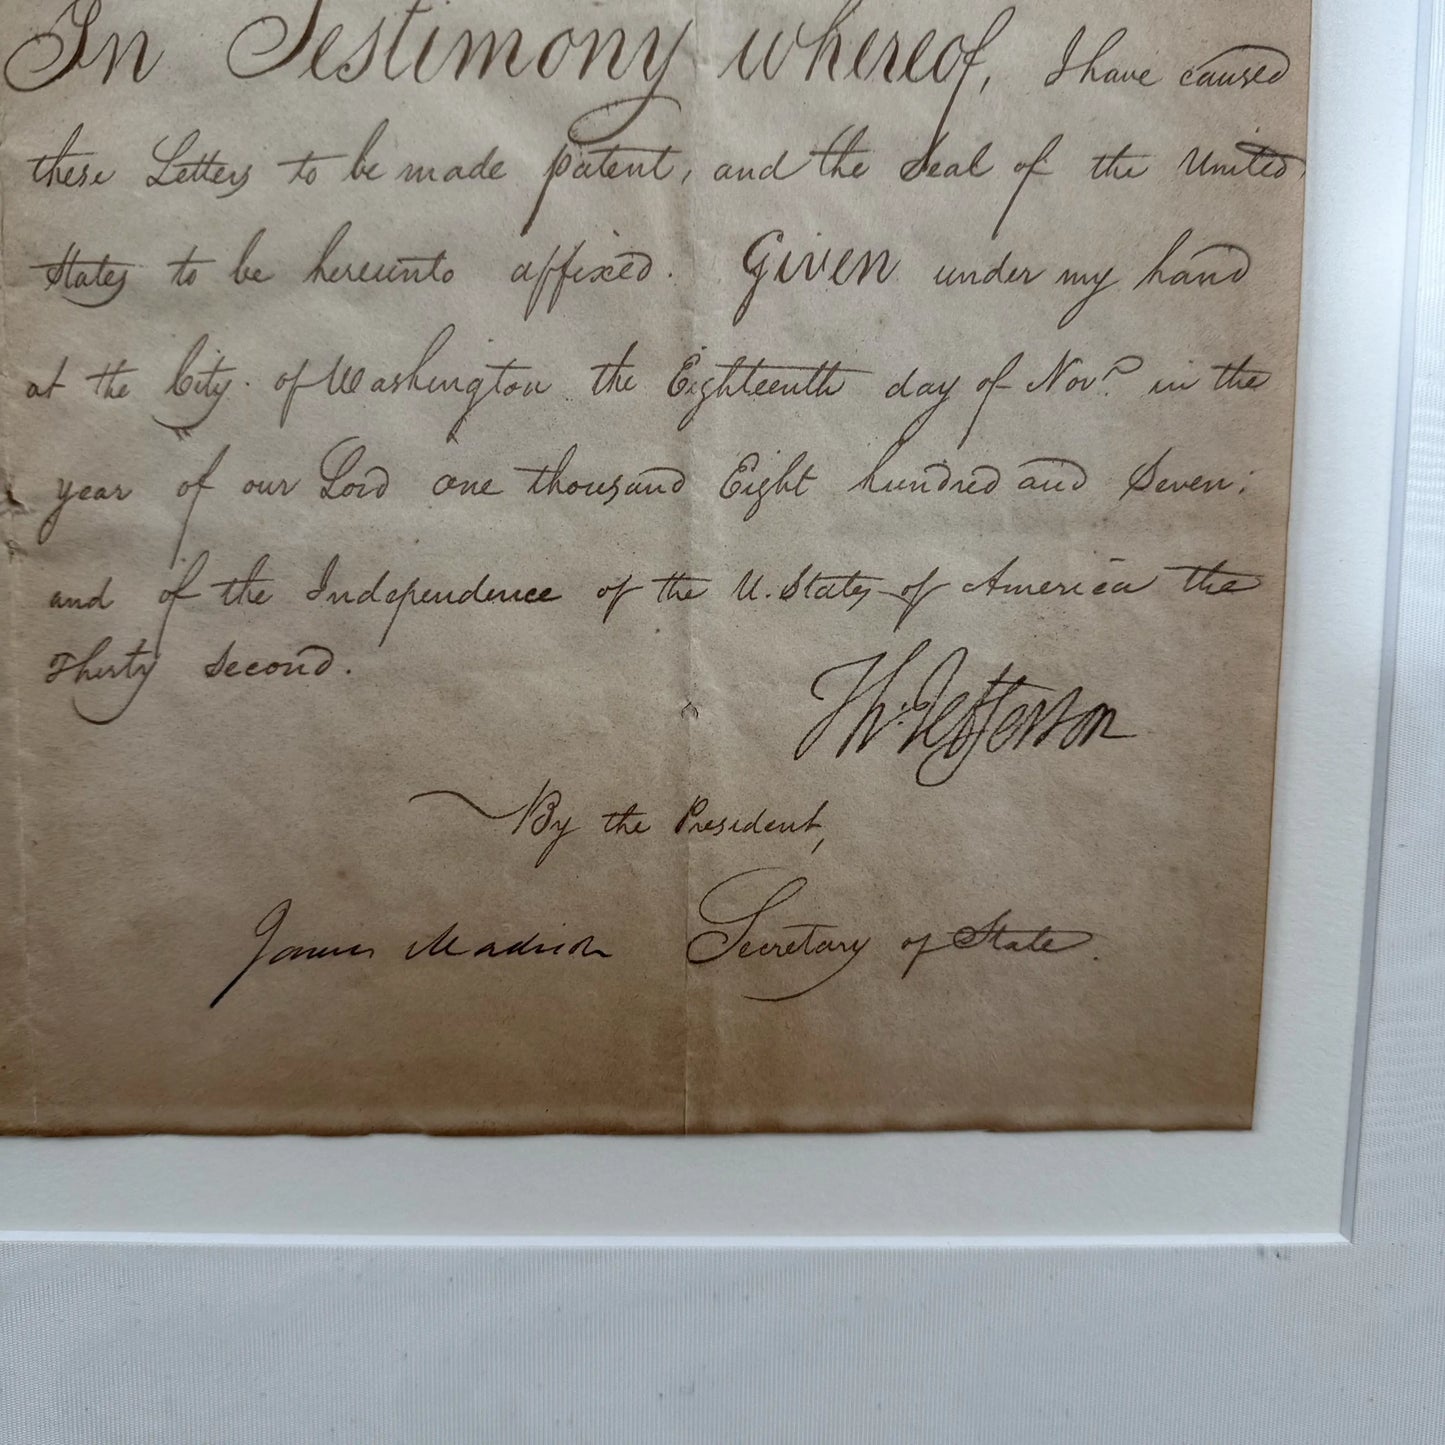 In Testimony whereof, I have caused
these Letters to be made patent, and the Seal of the United
States to be hereunto affixed. Given under my hand
at the City of Washington the Eighteenth day of Novr. in the
year of our Lord one thousand Eight hundred and Seven;
and of the Independence of the U. States of America the
Thirty Second.
Th: Jefferson
By the President,
James Madison Secretary of State.